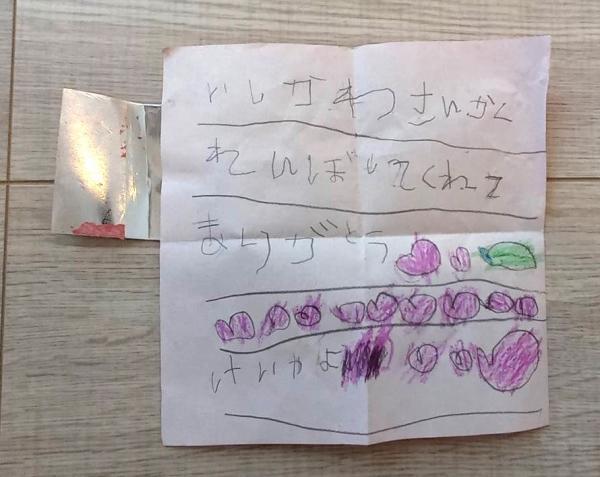 いしがわさんかく
れんぼしてくれて
ありがとう
けいかよ